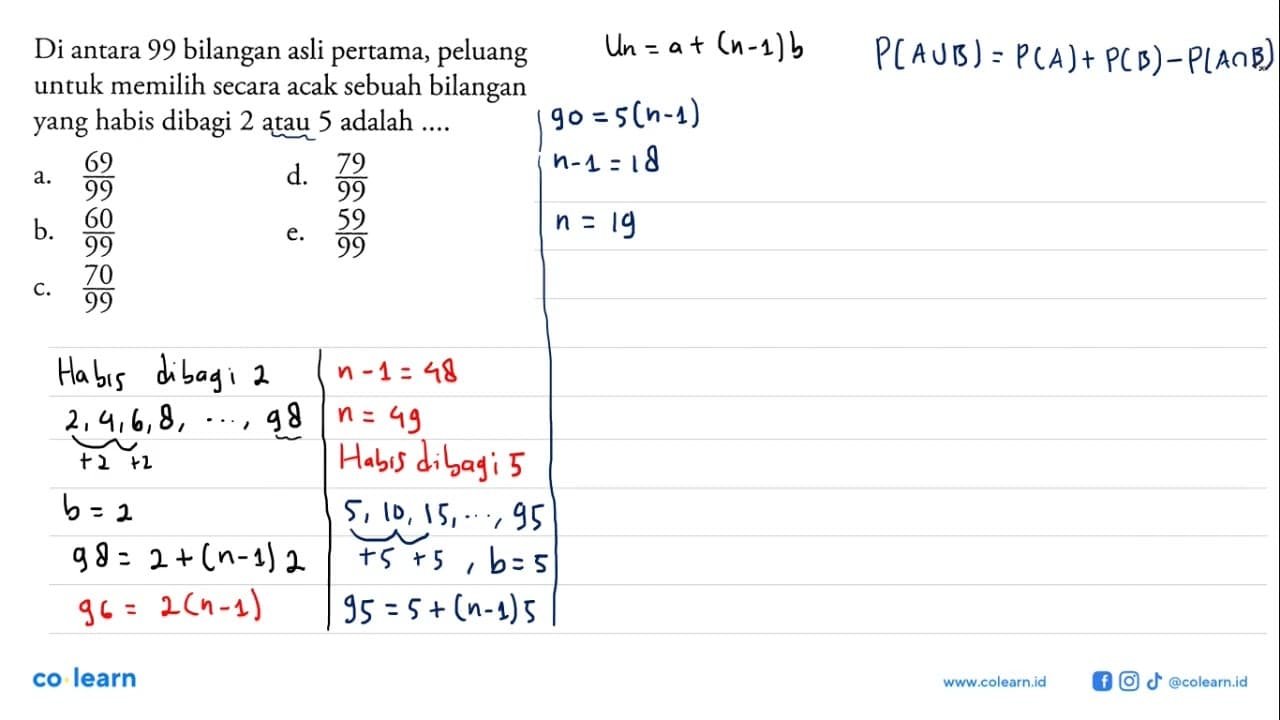 Di antara 99 bilangan asli pertama, peluang
untuk memilih secara acak sebuah bilangan
yang habis dibagi 2 atau 5 adalah ....
a. 69/99
d. 79/99
b. 60/99
e. 59/99
c. 70/99
Un = a + (n-1)b
P(A∪B) = P(A) + P(B) - P(A∩B)
90 = 5(n-1)
n-1 = 18
n = 19
Habis dibagi 2
2, 4, 6, 8, ..., 98
+2 +2
b = 2
98 = 2 + (n-1) 2
96 = 2(n-1)
n - 1 = 48
n = 49
Habis dibagi 5
5, 10, 15, ..., 95
+5 +5, b = 5
95 = 5 + (n-1) 5
co learn
www.colearn.id
@colearn.id